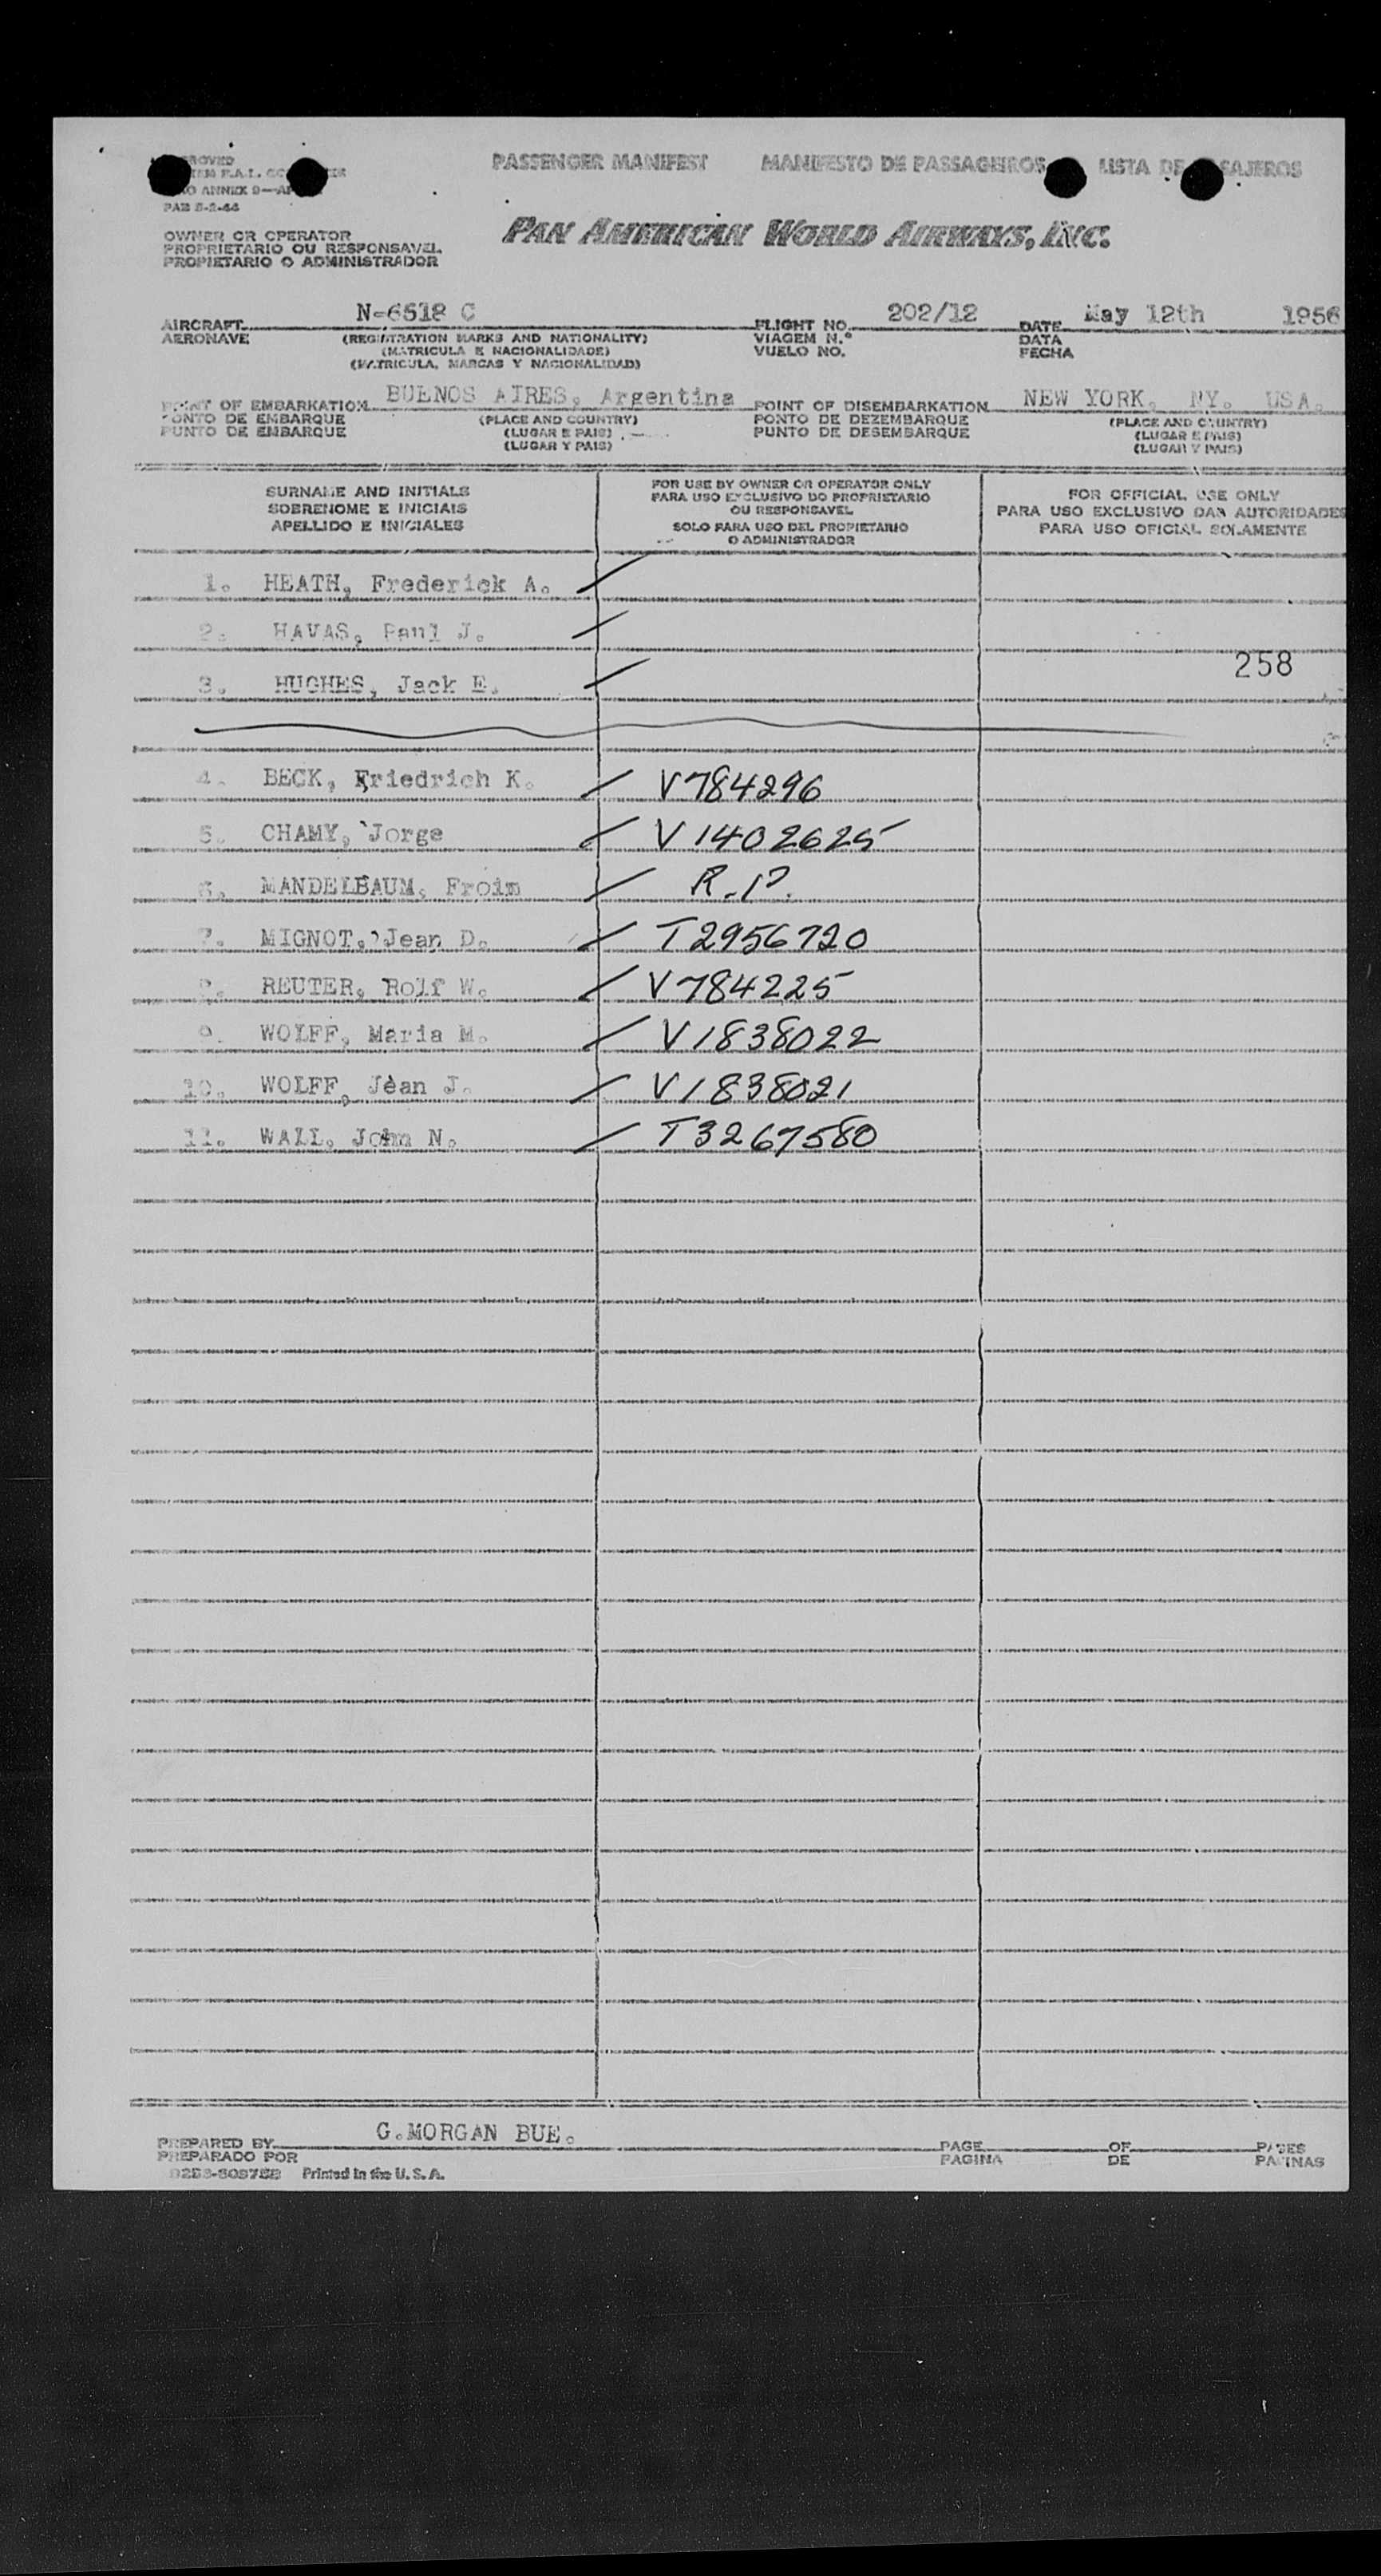 PASSENGER MANIFEST MANIFESTO DE PASSAGEIROS LISTA DE
ANNEX 9
OWNER OR OPERATOR
PROPRIETARIO OU RESPONSAVEL
PROPIETARIO O ADMINISTRADOR
PAN AMERICAN WORLD AIRWAYS, INC.
AIRCRAFT N-6518 C FLIGHT NO. 202/12 DATE May 12th 1956
AERONAVE (REGISTRATION MARKS AND NATIONALITY) VIAGEM N.º DATA
(MATRICULA E NACIONALIDADE) VUELO NO. FECHA
(MATRICULA, MARCAS Y NACIONALIDAD)
POINT OF EMBARKATION BUENOS AIRES, Argentina POINT OF DISEMBARKATION NEW YORK, NY. USA.
PONTO DE EMBARQUE (PLACE AND COUNTRY) PONTO DE DEZEMBARQUE (PLACE AND COUNTRY)
PUNTO DE EMBARQUE (LUGAR E PAIS) PUNTO DE DESEMBARQUE (LUGAR E PAIS)
(LUGAR Y PAIS) (LUGAR Y PAIS)
SURNAME AND INITIALS
SOBRENOME E INICIAIS
APELLIDO E INICIALES
FOR USE BY OWNER OR OPERATOR ONLY
PARA USO EXCLUSIVO DO PROPRIETARIO
OU RESPONSAVEL
SOLO PARA USO DEL PROPIETARIO
O ADMINISTRADOR
FOR OFFICIAL USE ONLY
PARA USO EXCLUSIVO DAS AUTORIDADES
PARA USO OFICIAL SOLAMENTE
1. HEATH, Frederick A.
2. HAVAS, Paul J.
258
3. HUGHES, Jack E.
4. BECK, Friedrich K. V784296
5. CHAMY, Jorge V1402625
6. MANDELBAUM, Froim R.P.
7. MIGNOT, Jean D. T2956720
8. REUTER, Rolf W. V784225
9. WOLFF, Maria M. V1838022
10. WOLFF, Jean J. V1838021
11. WALL, John N. T3267580
PREPARED BY G.MORGAN BUE. PAGE OF PAGES
PREPARADO POR PAGINA DE PAGINAS
Printed in the U.S.A.